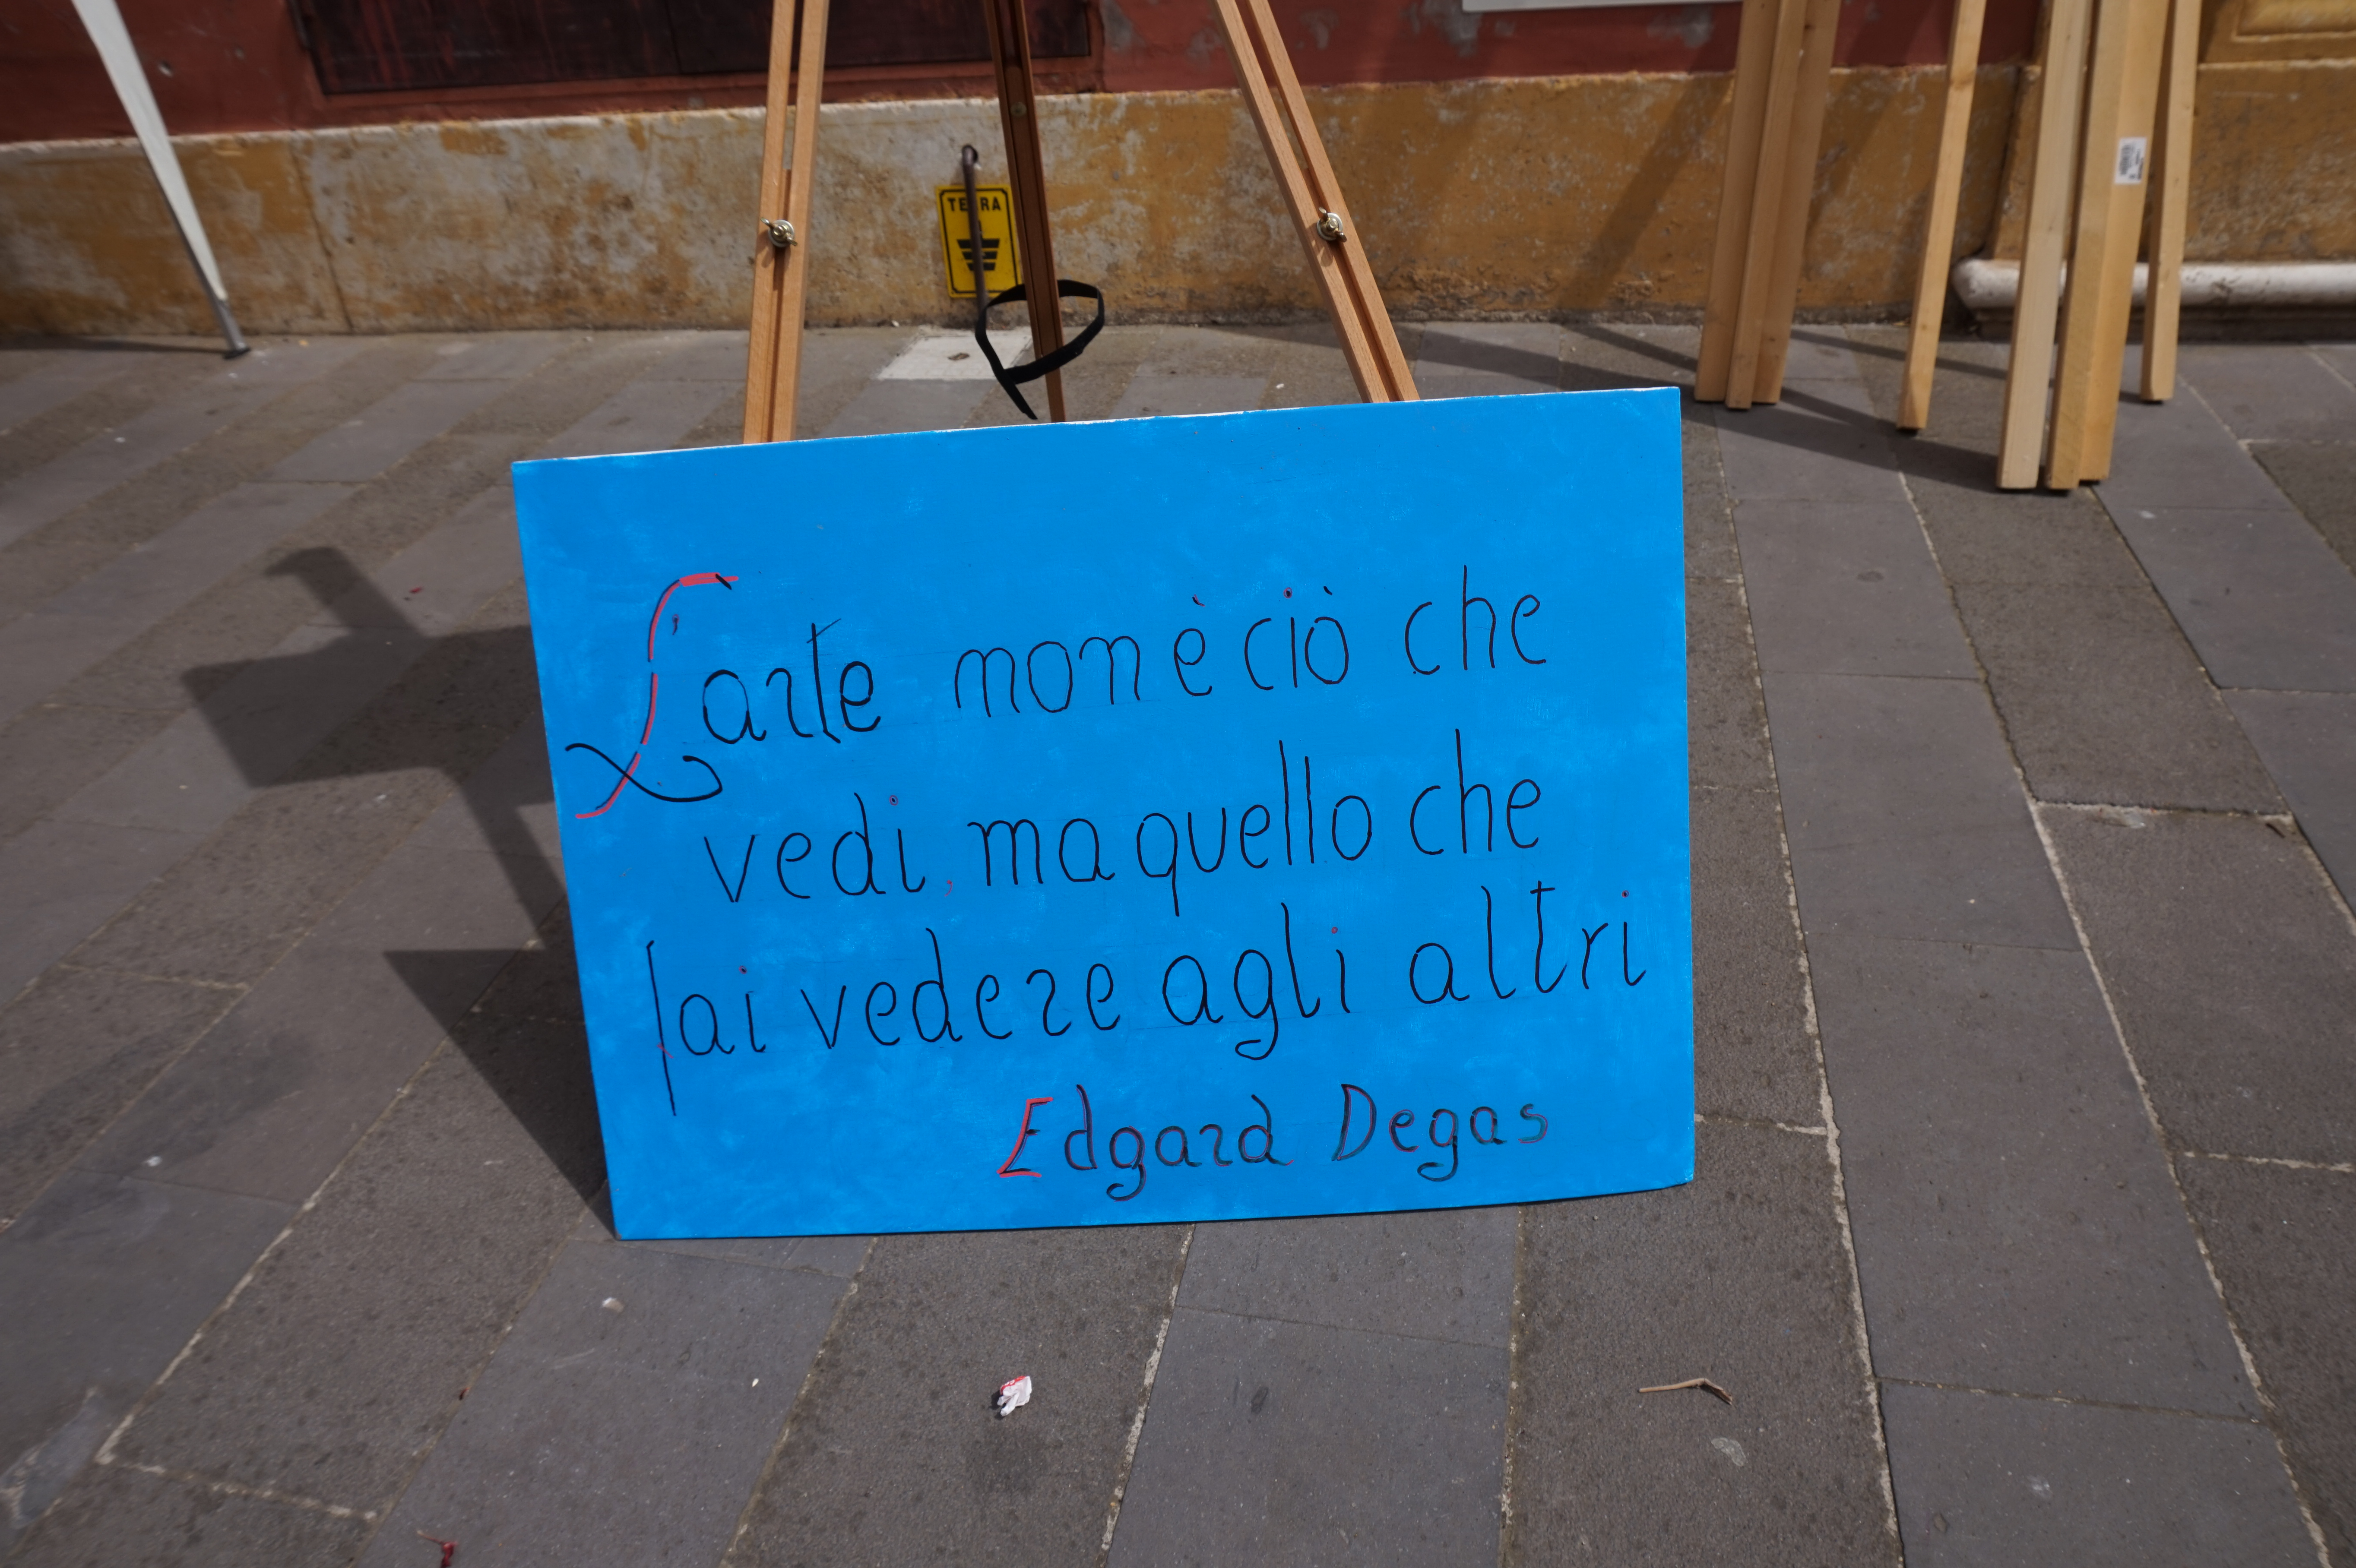 TERRA
L'arte non è ciò che
vedi, ma quello che
fai vedere agli altri
Edgard Degas